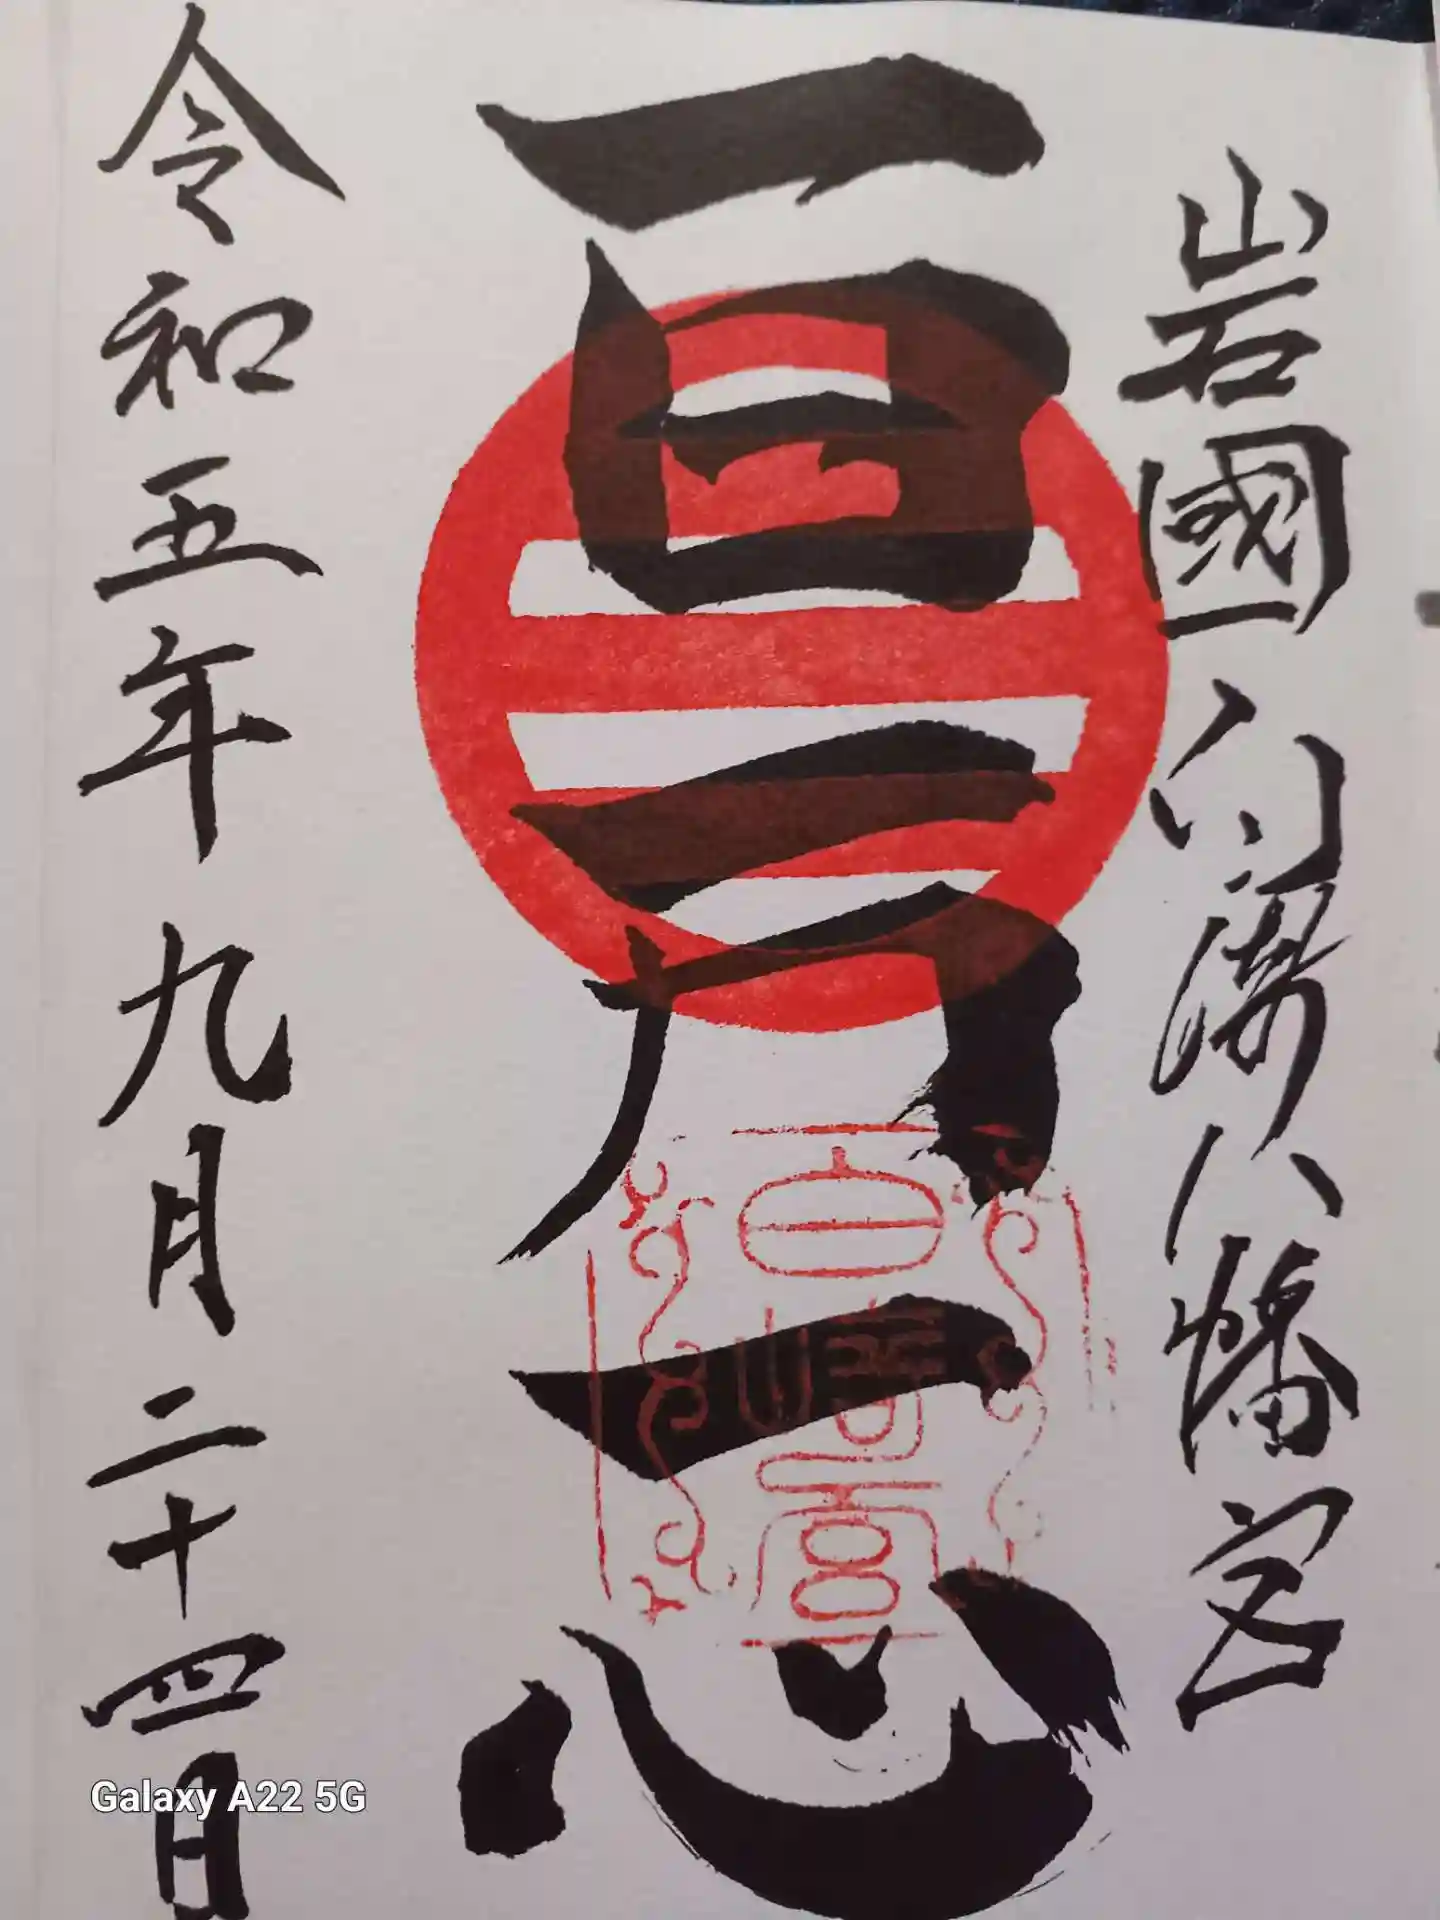 岩國白崎八幡宮
一日一月一心
白崎宮
令和五年九月二十四日
Galaxy A22 5G